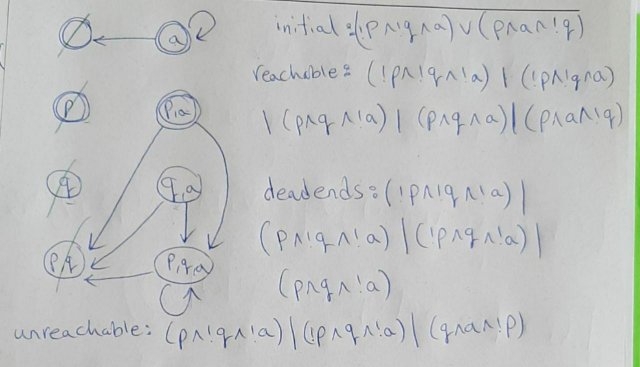 a initial:(!p∧!q∧a)∨(p∧a∧!q)
reachable: (!p∧!q∧!a) | (!p∧!q∧a)
p p,a | (p∧q∧!a) | (p∧q∧a) | (p∧a∧!q)
q q,a deadends:(!p∧!q∧!a) |
(p∧!q∧!a) | (!p∧q∧!a) |
p,q p,q,a (p∧q∧!a)
unreachable: (p∧!q∧!a) | (!p∧q∧!a) | (q∧a∧!p)